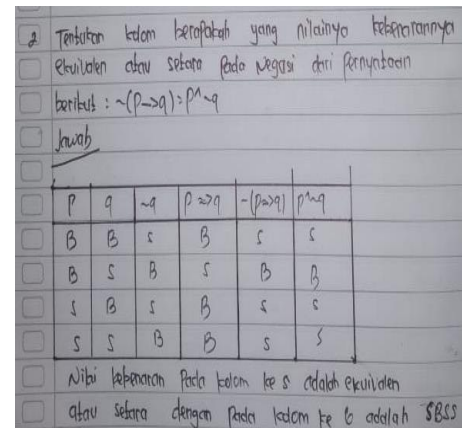 2 Tentukan kolom berapakah yang nilainya kebenarannya
ekuivalen atau setara pada Negasi dari Pernyataan
berikut : ~(P->q) = P^~q
Jawab
P q ~q P=>q ~(P=>q) P^~q
B B S B S S
B S B S B B
S B S B S S
S S B B S S
Nilai kebenaran Pada kolom ke 5 adalah ekuivalen
atau setara dengan pada kolom ke 6 adalah SBSS